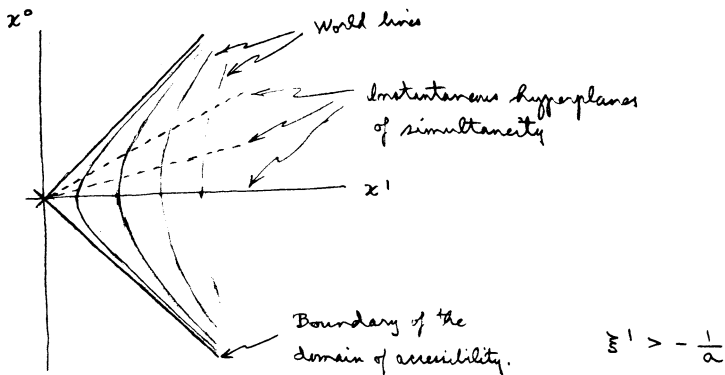 x⁰
World lines
Instantaneous hyperplanes
of simultaneity
x¹
Boundary of the
domain of accessibility.
ξ¹ > - 1/a